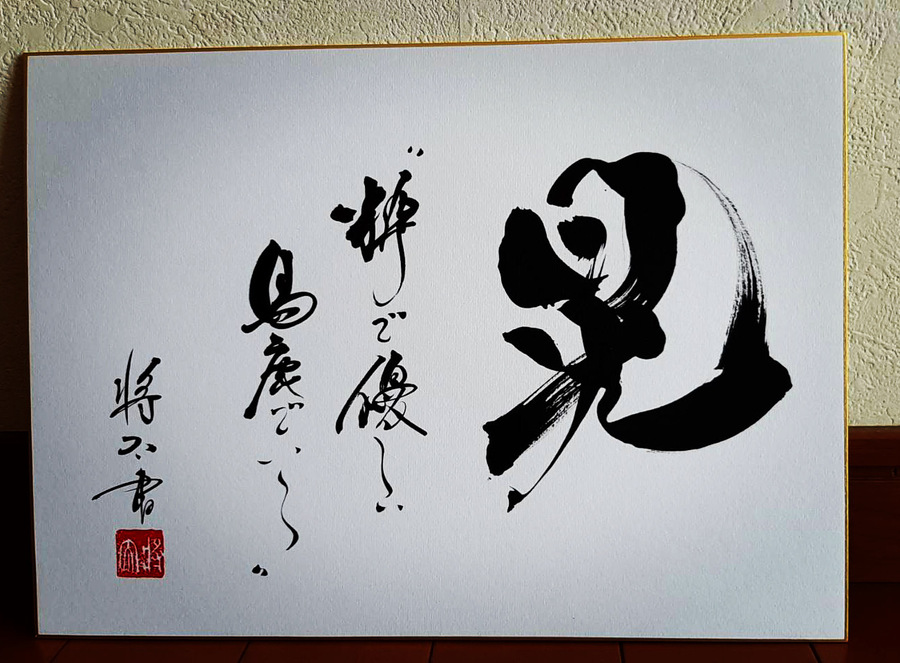 晃
“粋で優しい
馬鹿でいろ”
将 書